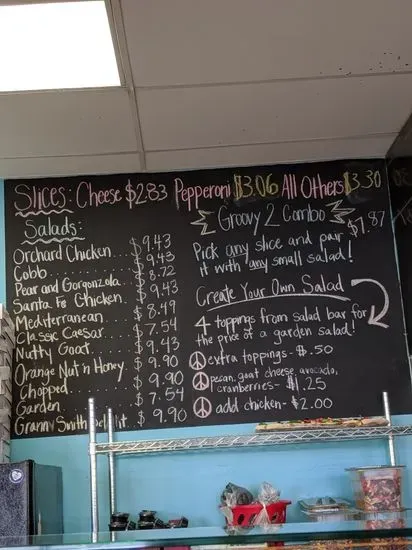 Slices: Cheese $2.83 Pepperoni $3.06 All Others $3.30
Salads:
Orchard Chicken... $9.43
Cobb............ $9.43
Pear and Gorgonzola.. $8.72
Santa Fe Chicken.. $9.43
Mediterranean..... $8.49
Classic Caesar.... $7.54
Nutty Goat....... $9.43
Orange Nut'n Honey.. $9.90
Chopped......... $9.90
Garden.......... $7.54
Granny Smith $9.90
Groovy 2 Combo
Pick any slice and pair
it with any small salad!
Create Your Own Salad
4 toppings from salad bar for
the price of a garden salad!
extra toppings- $.50
pecan, goat cheese, avocado,
cranberries- $1.25
add chicken- $2.00